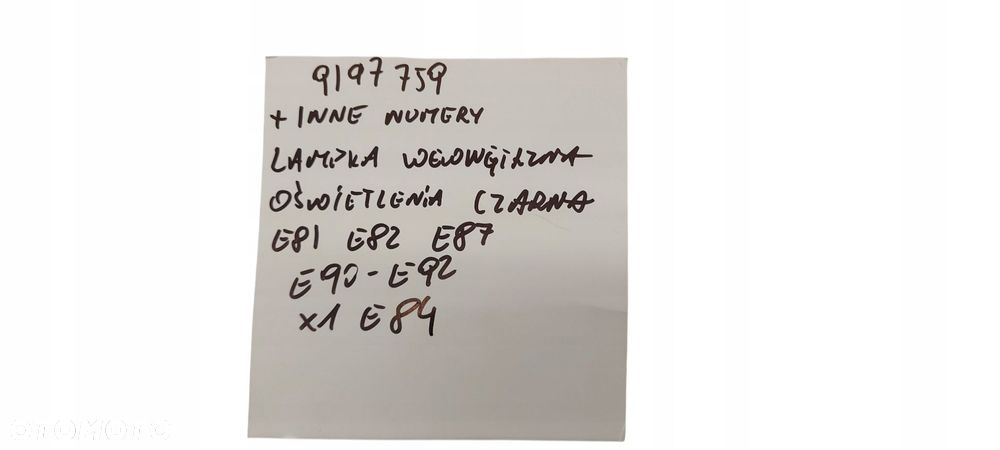 9197759
+ INNE NUMERY
LAMPKA WEWNĘTRZNA
OŚWIETLENIA CZARNA
E81 E82 E87
E90-E92
X1 E84
OTOMOTO